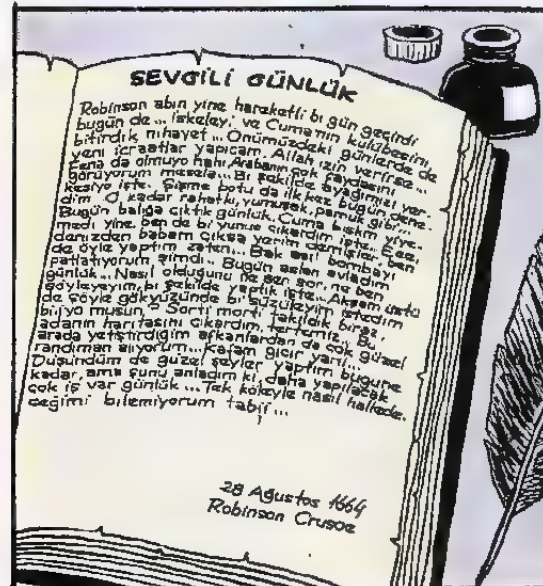 SEVGİLİ GÜNLÜK
Robinson abin yine hareketli bi gün geçirdi
bugün de... İskeleyi ve Cuma'nın kulübesini
bitirdik nihayet... Önümüzdeki günlerde de
yeni icraatlar yapıcam, Allah izin verirse...
Fena da olmuyo hani, Arabanın çok faydasını
görüyorum mesela... Bi şekilde ayağımızı yer-
den kesiyo işte. Şişme botu da ilk kez bugün dene-
dim. O kadar rahatki, yumuşak, pamuk gibi...
Bugün balığa çıktık günlük. Cuma bıskım yiye-
medi yine, ben de bi yunus çıkardım işte.. Eee,
denizden babam çıksa yerim demişler, ben
de öyle yaptım zaten... Bak asıl bombayı
patlatıyorum şimdi... Bugün aslan avladım
günlük... Nasıl olduğunu ne sen sor, ne ben
söyleyeyim, bi şekilde yaptık işte.. Akşam üstü
de şöyle gökyüzünde bi süzüleyim istedim
biliyo musun,? Sorti morti takıldık biraz,
adanın haritasını çıkardım, tertemiz.. Bu
arada yetiştirdiğim afkanlardan da çok güzel
randıman alıyorum... Kafam gıcır yani...
Düşündüm de güzel şeyler yaptım bugüne
kadar, ama şunu anladım ki daha yapılacak
çok iş var günlük... Tek köleyle nasıl hallede-
ceğimi bilemiyorum tabii...
28 Ağustos 1664
Robinson Crusoe